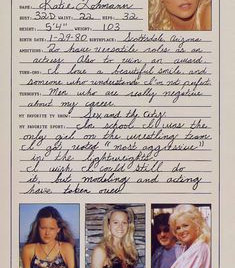 NAME: Katie Lohmann
BUST: 32D WAIST: 22 HIPS: 32
HEIGHT: 5'4" WEIGHT: 103
BIRTH DATE: 1-29-80 BIRTHPLACE: Scottsdale, Arizona
AMBITIONS: To have versatile roles as an
actress. Also to win an award.
TURN-ONS: I love a beautiful smile, and
someone who understands I'm not perfect
TURNOFFS: Men who are really negative
about my career.
MY FAVORITE TV SHOW: Sex and the City
MY FAVORITE SPORT: In school I was the
only girl on the wrestling team.
I got voted "most aggressive"
in the lightweights.
I wish I could still do
it, but modeling and acting
have taken over!